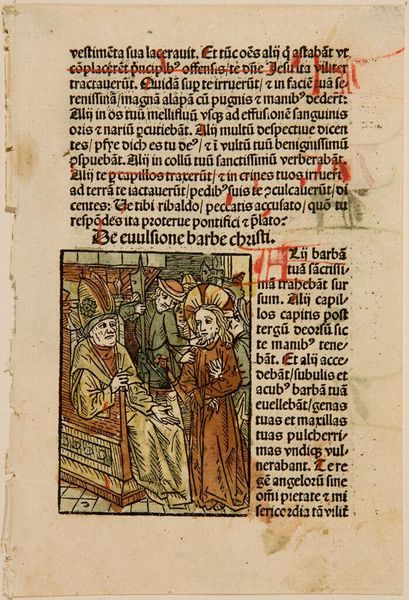 vestimēta sua lacerauit. Et tūc oēs alij q̄ astabāt vt
cōplacerēt p̄ncipibꝰ offensis/te dn̄e Jesu ita viliter
tractauerūt. Quidā sup te irruerūt/⁊ in faciē tuā se⸗
renissimā/magnā alapā cū pugnis ⁊ manibꝰ dederūt:
Alij in os tuū mellifluū vsqꝫ ad effusionē sanguinis
oris ⁊ nariū p̱cutiebāt. Alij multū despectiue dicen
tes/pfye dich es tu deꝰ/⁊ ī vultū tuū benignissimū
ꝯspuebāt. Alij in collū tuū sanctissimū verberabāt.
Alij te p̱ capillos traxerūt/⁊ in crines tuos irruerāt
ad terrā te iactauerūt/pedibꝰ suis te ꝯculcauerūt/di
centes: Ue tibi ribaldo/peccatis accusato/quō tu
respōdes ita proterue pontifici ⁊ p̱lato:
De euulsione barbe christi.
Lij barbā
tuā sāctissi
mā trahebāt sur
sum. Alij capil⸗
los capitis post
tergū deorsū sic
te manibꝰ tene⸗
bāt. Et alij acce
debāt/subulis et
acubꝰ barbā tuā
euellebāt/genas
tuas et maxillas
tuas pulcherri⸗
mas vndiqꝫ vul⸗
nerabant. Te re⸗
gē angelorū sine
om̄i pietate ⁊ mi
sericordia tā vilit̄